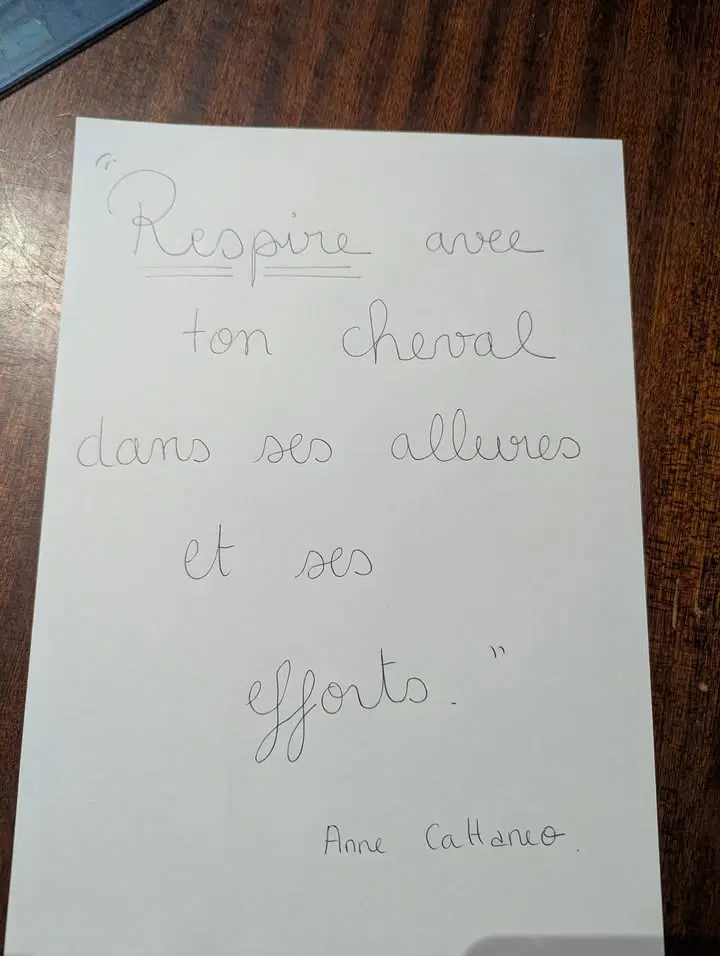 "Respire avec
ton cheval
dans ses allures
et ses
efforts."
Anne Cattaneo.